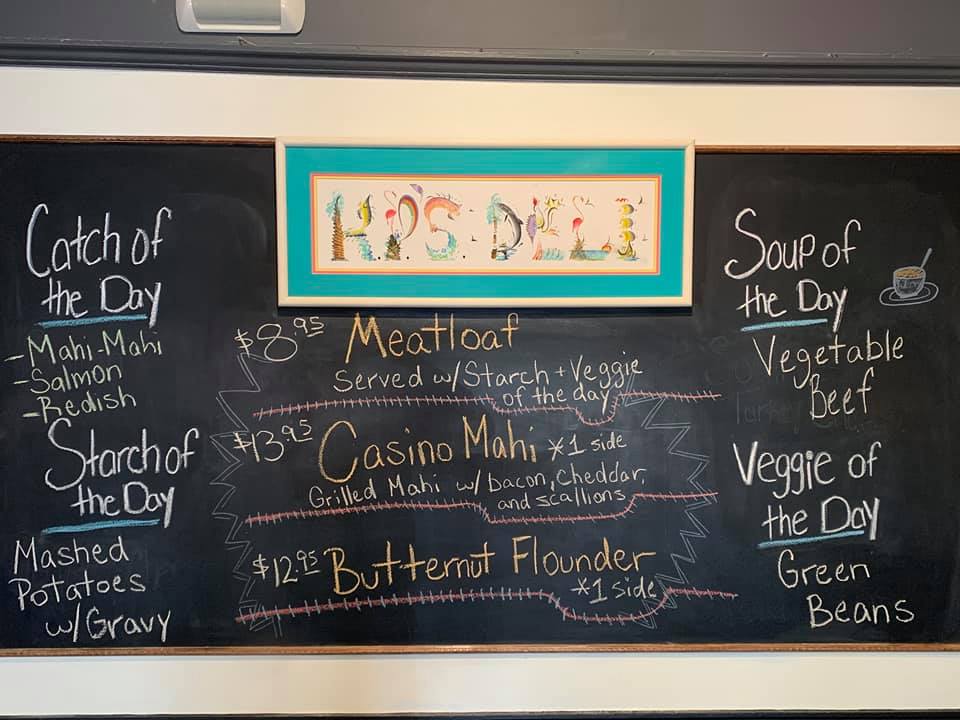 K.D'S DELI
Catch of
the Day
-Mahi-Mahi
-Salmon
-Redish
Starch of
the Day
Mashed
Potatoes
w/Gravy
$8.95 Meatloaf
Served w/Starch + Veggie
of the day
$13.95 Casino Mahi *1 side
Grilled Mahi w/bacon, Cheddar,
and scallions
$12.95 Butternut Flounder
*1 side
Soup of
the Day
Vegetable
Beef
Veggie of
the Day
Green
Beans